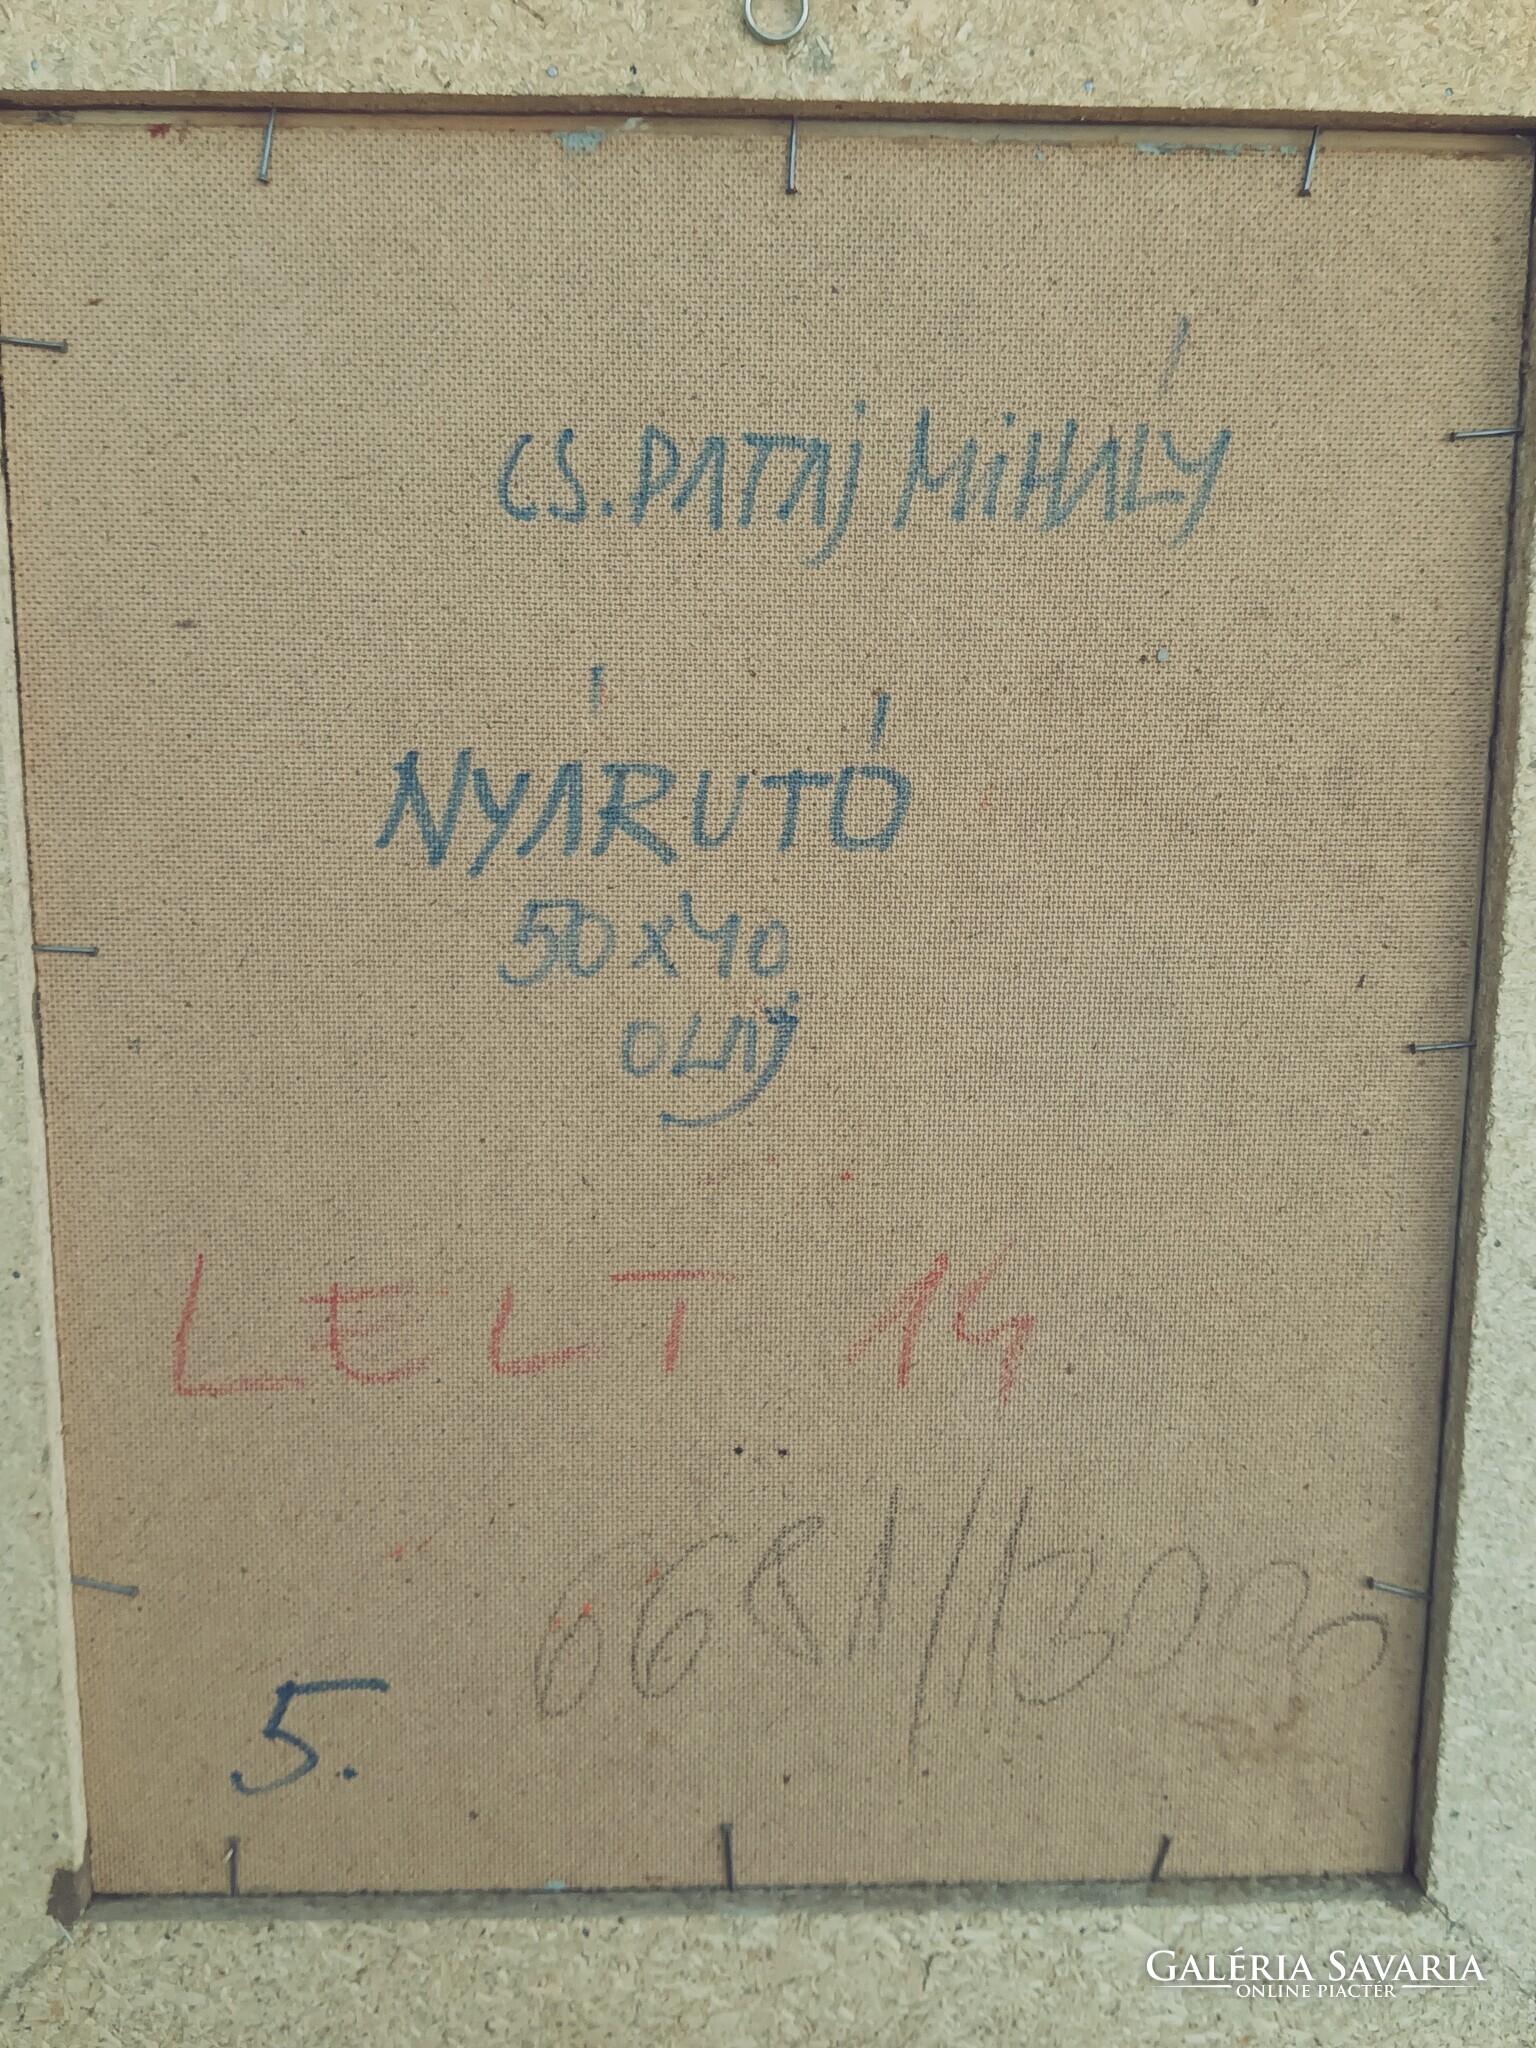 CS. PATAJ MIHÁLY
NYÁRUTÓ
50x40
OLAJ
LELT 14
5.
GALÉRIA SAVARIA
ONLINE PIACTÉR